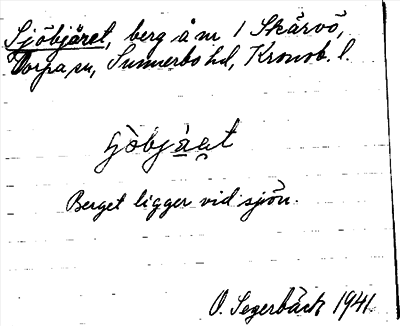 Sjöbjäret, berg å m 1 Skärvö,
Torpa sn, Sunnerbo hd, Kronob. l.
Berget ligger vid sjön.
O. Segerbäck 1941.